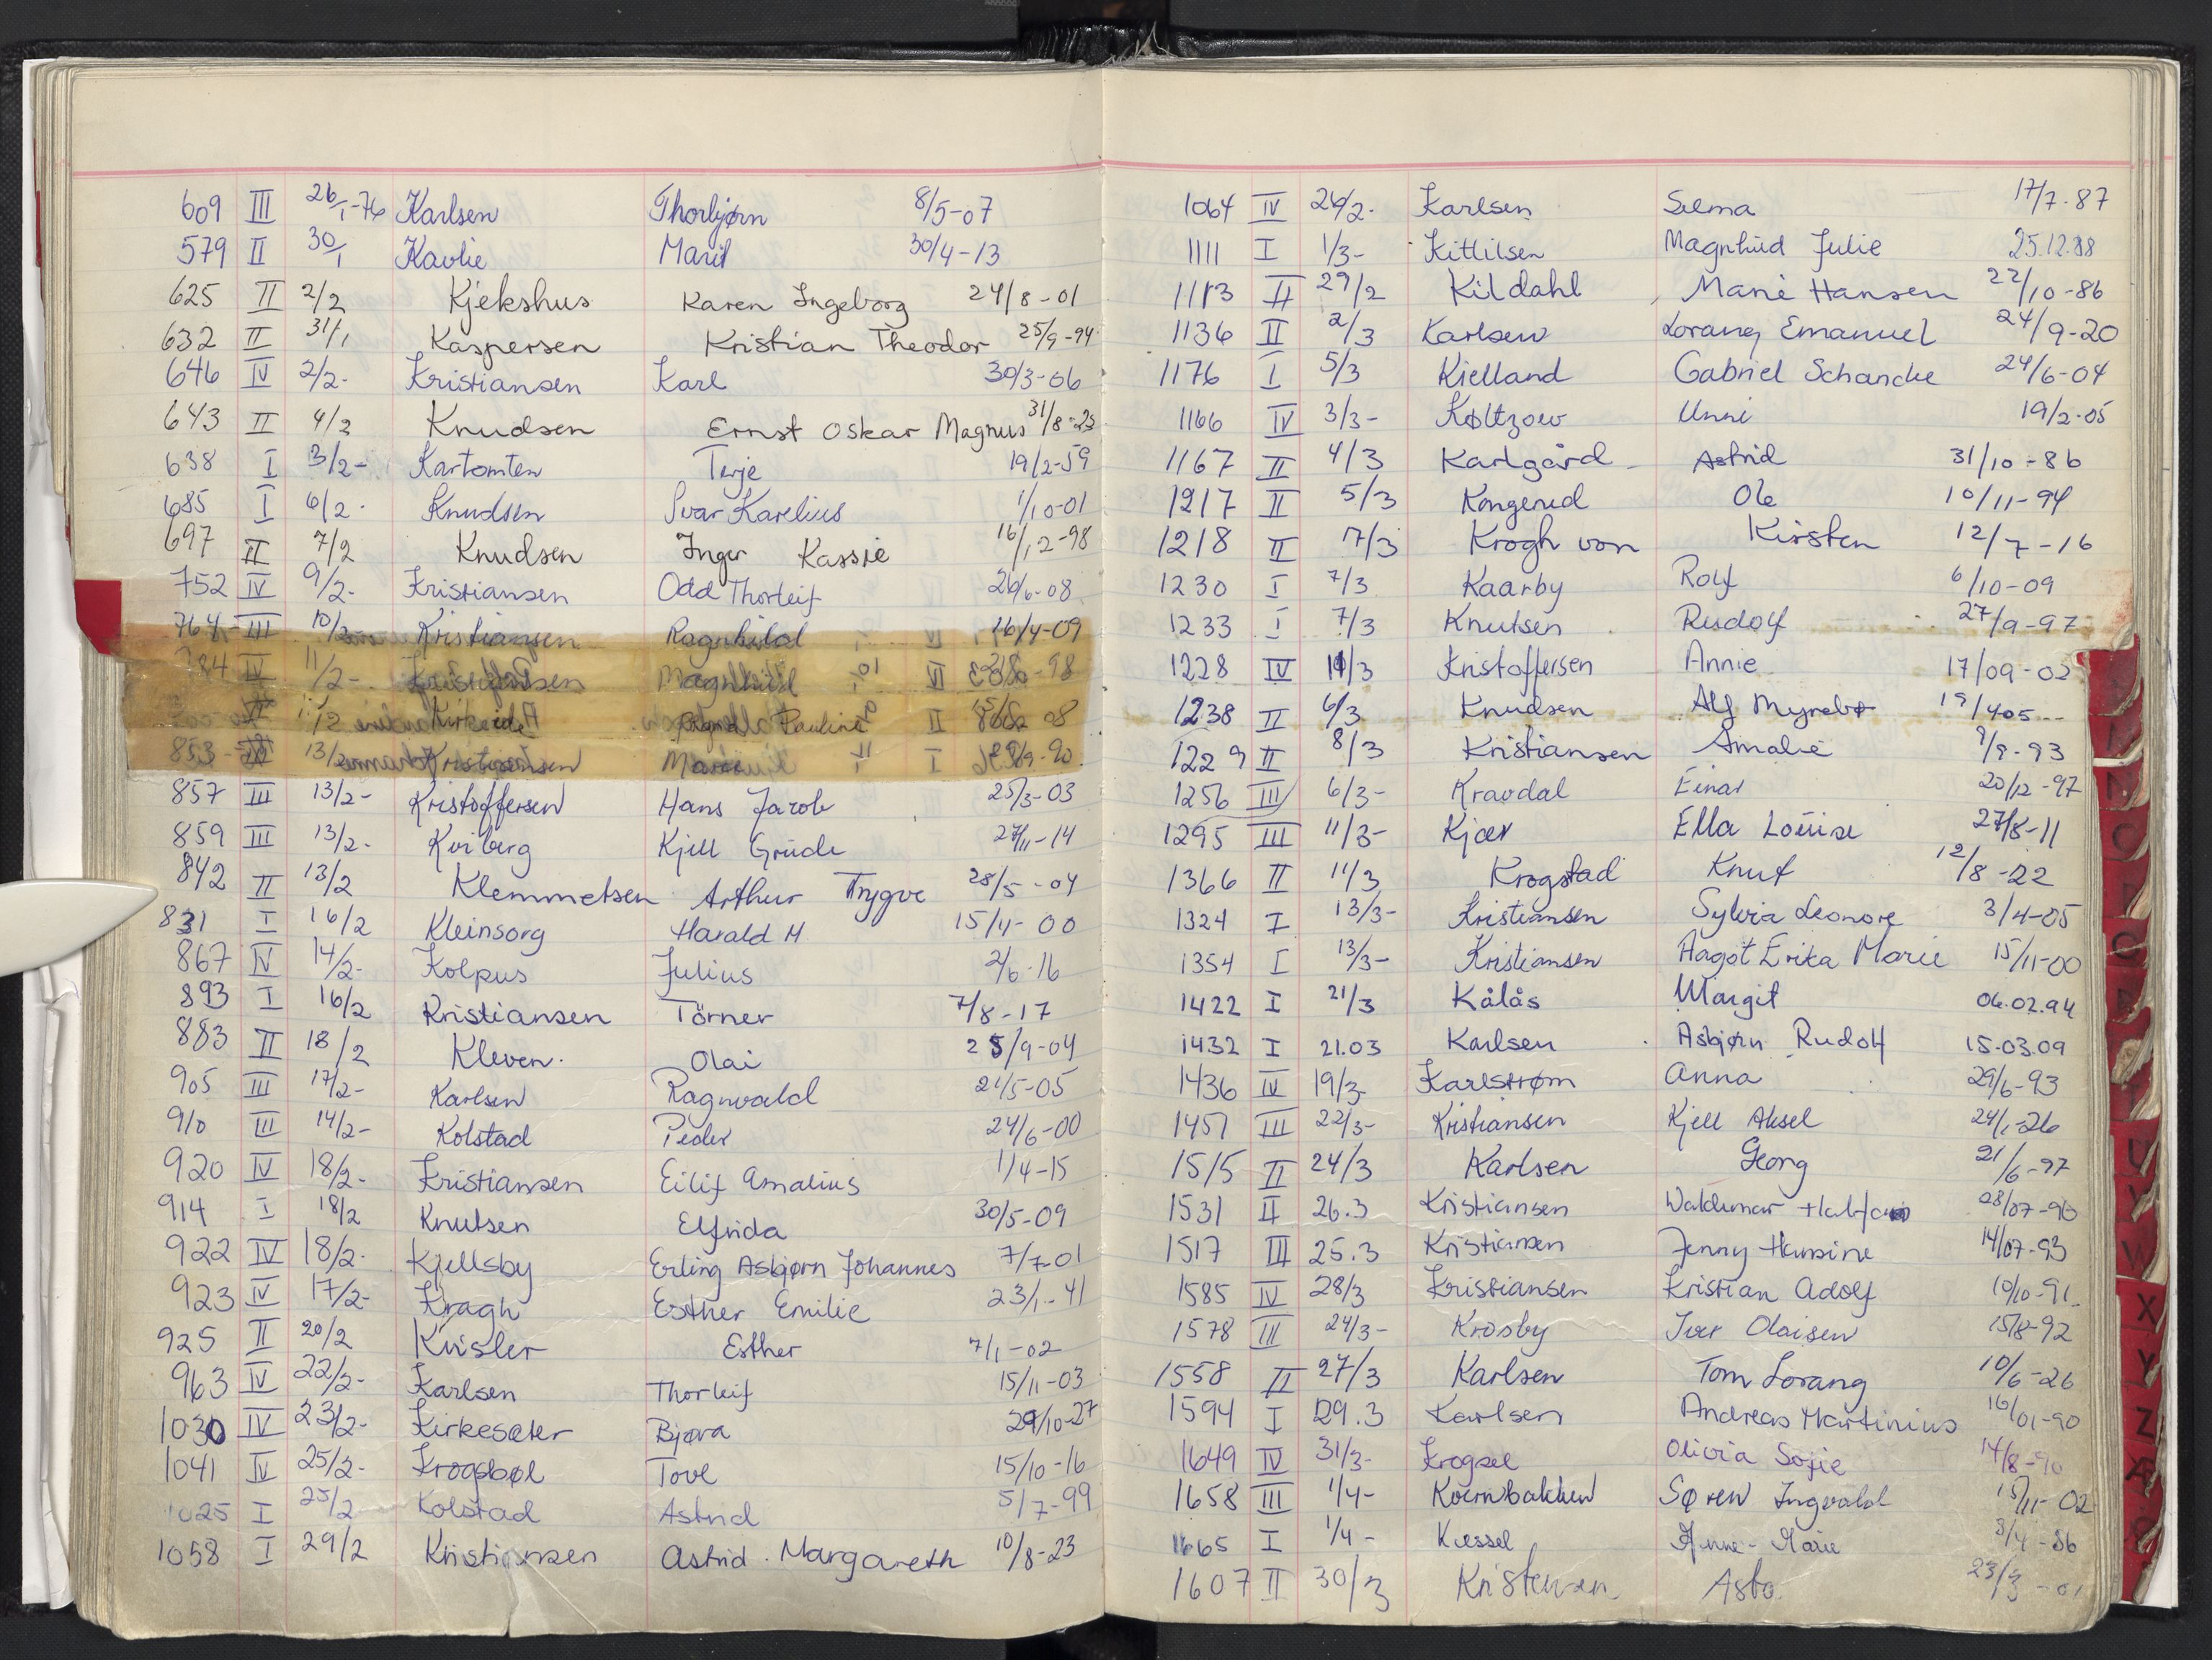 609 III 26/1-76 Karlsen Thorbjørn 8/5-07
579 II 30/1 Kavlie Marit 30/4-13
625 II 2/2 Kjekshus Karen Ingeborg 24/8-01
632 II 31/1 Kaspersen Kristian Theodor 25/9-94
646 IV 2/2- Kristiansen Karl 30/3-06
643 II 4/2 Knudsen Ernst Oskar Magnus 31/8-23
638 I 3/2- Kartomten Terje 19/2-59
685 I 6/2- Knudsen Ivar Karelius 1/10-01
697 II 7/2 Knudsen Inger Kassie 16/12-98
752 IV 9/2- Kristiansen Odd Thorleif 26/6-08
764 III 10/2- Kristiansen Ragnhild 16/4-09
784 IV 11/2- Magnhild -98
Pauline 08
853 13/2 Kristiansen -90
857 III 13/2- Kristoffersen Hans Jacob 25/3-03
859 III 13/2- Kviberg Kjell Grude 27/11-14
842 II 13/2 Klemmetsen Arthur Trygve 28/5-04
831 I 16/2 Kleinsorg Harald M 15/11-00
867 IV 14/2- Kolpus Julius 2/6-16
893 I 16/2 Kristiansen Törner 7/8-17
883 II 18/2 Kleven. Olai 25/9-04
905 III 17/2- Karlsen Ragnvald 21/5-05
910 III 14/2- Kolstad Peder 24/6-00
920 IV 18/2- Kristiansen Eilif Amalius 1/4-15
914 I 18/2 Knutsen Elfrida 30/5-09
922 IV 18/2- Kjellsby Erling Asbjørn Johannes 7/7-01
923 IV 17/2- Kragh Esther Emilie 23/1-41
925 II 20/2 Kvisler Esther 7/1-02
963 IV 22/2- Karlsen Thorleif 15/11-03
1030 IV 23/2- Kirkesæter Bjøra 29/10-27
1041 IV 25/2- Krogsbøl Tove 15/10-16
1025 I 25/2 Kolstad Astrid 5/7-99
1058 I 29/2 Kristiansen Astrid Margareth 10/8-23
1064 IV 26/2- Karlsen Selma 17/7-87
1111 I 1/3- Kittilsen Magnhild Julie 25.12.88
1113 II 29/2 Kildahl Marie Hansen 22/10-86
1136 II 2/3 Karlsen Lorang Emanuel 24/9-20
1176 I 5/3 Kielland Gabriel Schancke 24/6-04
1166 IV 3/3- Køltzow Unni 19/2-05
1167 II 4/3 Karlgård Astrid 31/10-86
1217 II 5/3 Kongerud Ole 10/11-94
1218 II 7/3 Krogh von Kirsten 12/7-16
1230 I 7/3 Kaarby Rolf 6/10-09
1233 I 7/3 Knutsen Rudolf 27/9-97
1228 IV 11/3 Kristoffersen Annie 17/09-02
1238 II 6/3 Knudsen Alf Myrebø 19/4 05
1229 II 8/3 Kristiansen Amalie 9/9-93
1256 III 6/3- Kravdal Einar 20/12-97
1295 III 11/3- Kjær Ella Louise 27/8-11
1366 II 11/3 Krogstad Knut 12/8-22
1324 I 13/3- Kristiansen Sylvia Leonore 3/4-05
1354 I 13/3- Kristiansen Hagot Erika Marie 15/11-00
1422 I 21/3 Kålås Margit 06.02.94
1432 I 21.03 Karlsen Asbjørn Rudolf 15.03.09
1436 IV 19/3 Karlstrøm Anna 29/6-93
1457 III 22/3- Kristiansen Kjell Aksel 24/1-26
1515 II 24/3 Karlsen Georg 21/6-97
1531 II 26.3 Kristiansen Waldemar 28/07-90
1517 III 25.3 Kristiansen Jenny Hansine 14/07-93
1585 IV 28/3 Kristiansen Kristian Adolf 10/10-91
1578 III 24/3- Krosby Iver Olaisen 15/8-92
1558 II 27/3 Karlsen Tom Lorang 10/6-26
1594 I 29.3 Karlsen Andreas Martinius 16/01-90
1649 IV 31/3- Krogsel Olivia Sofie 14/8-90
1658 III 1/4- Koernbakken Søren Ingvald 15/11-02
1665 I 1/4- Kiessel Anne-Marie 8/4-86
1607 II 30/3 Kristensen Asta 23/3-01
O
U
V
W
X
Y
Z
Æ